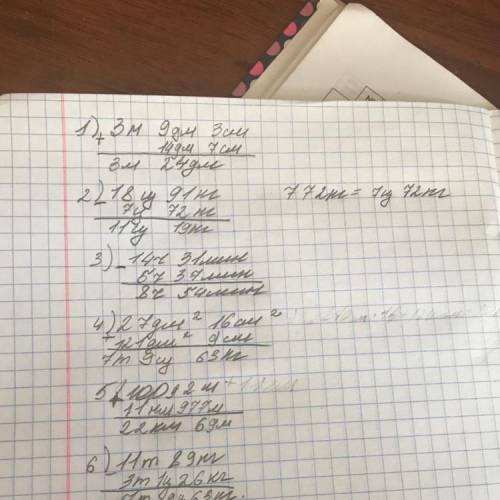 1) + 3м 9дм 3см
14дм 7см
3м 24дм
2) - 18ц 91кг 772кг = 7ц 72кг
7ц 72кг
11ц 19кг
3) - 14ч 31мин
5ч 37мин
8ч 54мин
4) + 27дм² 16см²
121дм² 9см
7т 9ц 63кг
5) + 92м
11км 977м
22км 69м
6) 11т 89кг
3т 1ц 26кг
63кг.